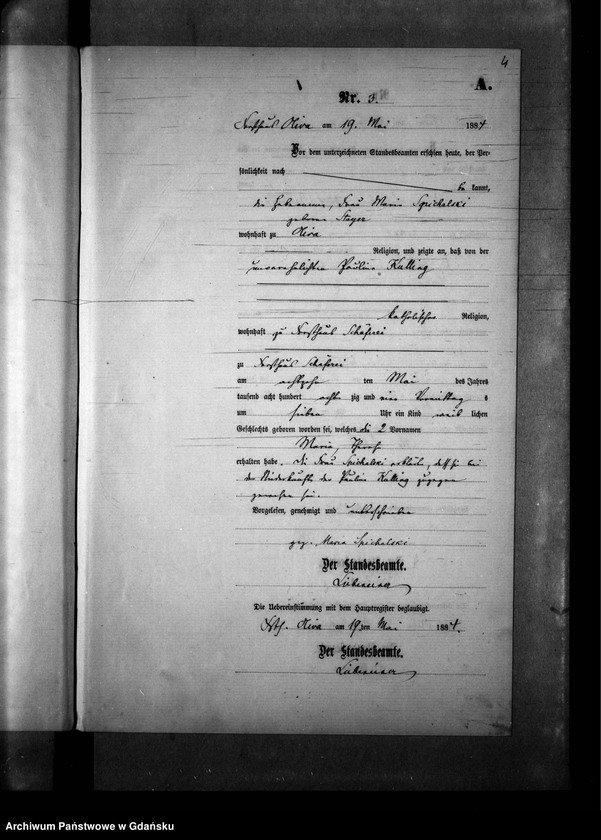 4
A.
Nr. 3.
Forsthaus Oliva am 19. Mai 1884
Vor dem unterzeichneten Standesbeamten erschien heute, der Per-
sönlichkeit nach
be kannt,
die Hebamme, Frau Maria Spichalski
geborne
wohnhaft zu Oliva
Religion, und zeigte an, daß von der
unverehelichten Pauline Kutting
katholischer Religion,
wohnhaft zu Forsthaus Schäferei
zu Forsthaus Schäferei
am achtzehn ten Mai des Jahres
tausend acht hundert acht zig und vier Vormittag s
um sieben Uhr ein Kind weib lichen
Geschlechts geboren worden sei, welches die 2 Vornamen
Maria,
erhalten habe. Die Frau Spichalski erklärte, daß sie bei
der Niederkunft der Pauline Kutting zugegen
gewesen sei.
Vorgelesen, genehmigt und unterschrieben
gez. Maria Spichalski
Der Standesbeamte.
Die Uebereinstimmung mit dem Hauptregister beglaubigt.
Fsth. Oliva am 19ten Mai 1884.
Der Standesbeamte.
Archiwum Państwowe w Gdańsku